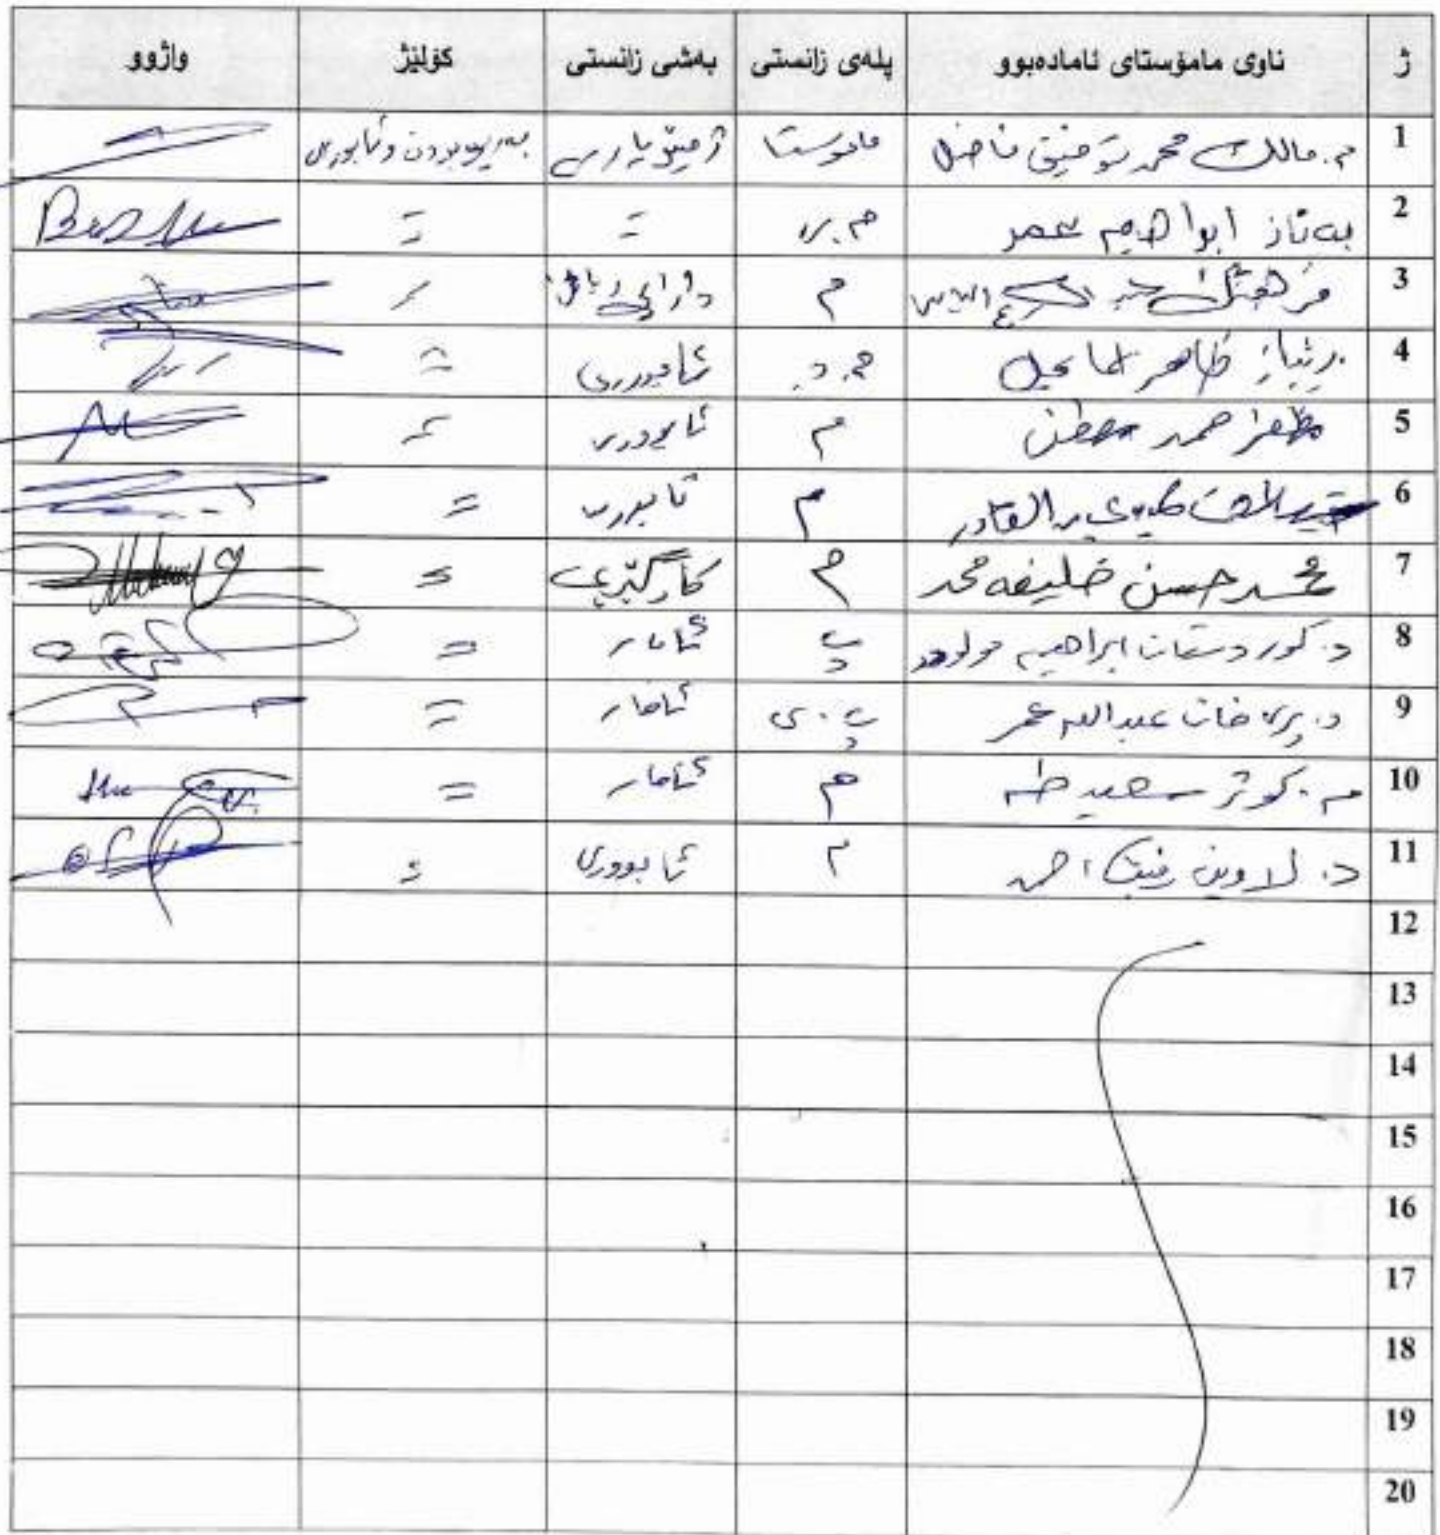 ژ ناوی مامۆستای ئامادەبوو پلەی زانستی بەشی زانستی کۆلێژ واژوو
1 م. مالك محمد توفیق فاضل مامۆستا ژمێریاری بەڕێوبردن وئابوری
2 بەناز ابراهيم عمر م.ی =
3 فرهنگ م
4 طاهر اسماعیل م.د. ئابووری =
5 مظفر حمد مصطفى م ئابوری =
6 عبدالقادر م ئابوری =
7 محمد حسن خليفه محمد م کارگێڕی =
8 د. کوردستان ابراهيم مولود پ.د ئامار =
9 د. پری خان عبدالله عمر پ.د.ی ئامار =
10 م. کوثر سعيد طه م ئامار =
11 د. لاوین رفيق احمد م ئابووری =
12
13
14
15
16
17
18
19
20